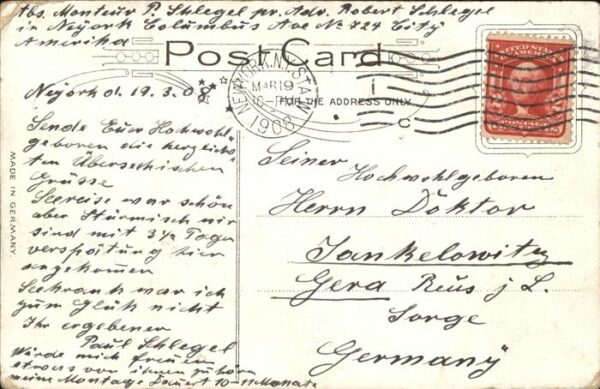 Abs. Monteur P. Schlegel pr. Adr. Robert Schlegel
in Neÿork Columbus Ave No 724 City
Amerika
Post Card
NEW YORK, N.Y. STA. W
MAR 19
1908
FOR THE ADDRESS ONLY
UNITED STATES OF AMERICA
MADE IN GERMANY.
Neÿork d. 19.3.08
Sende Euer Hochwohl-
geboren die herzlich-
sten Überseeischen
Grüsse
Seereise war schön
aber Stürmisch wir
sind mit 3 1/2 Tagen
verspätung hier
angekommen
Seekrank war ich
zum Glük nicht
Ihr ergebener
Paul Schlegel
Würde mich freuen
etwas von ihnen zu hören
meine Montage dauert 10-11 Monate
Seiner
Hochwohlgeboren
Herrn Doktor
Jankelowitz
Gera Reus j L.
Sorge
Germanÿ